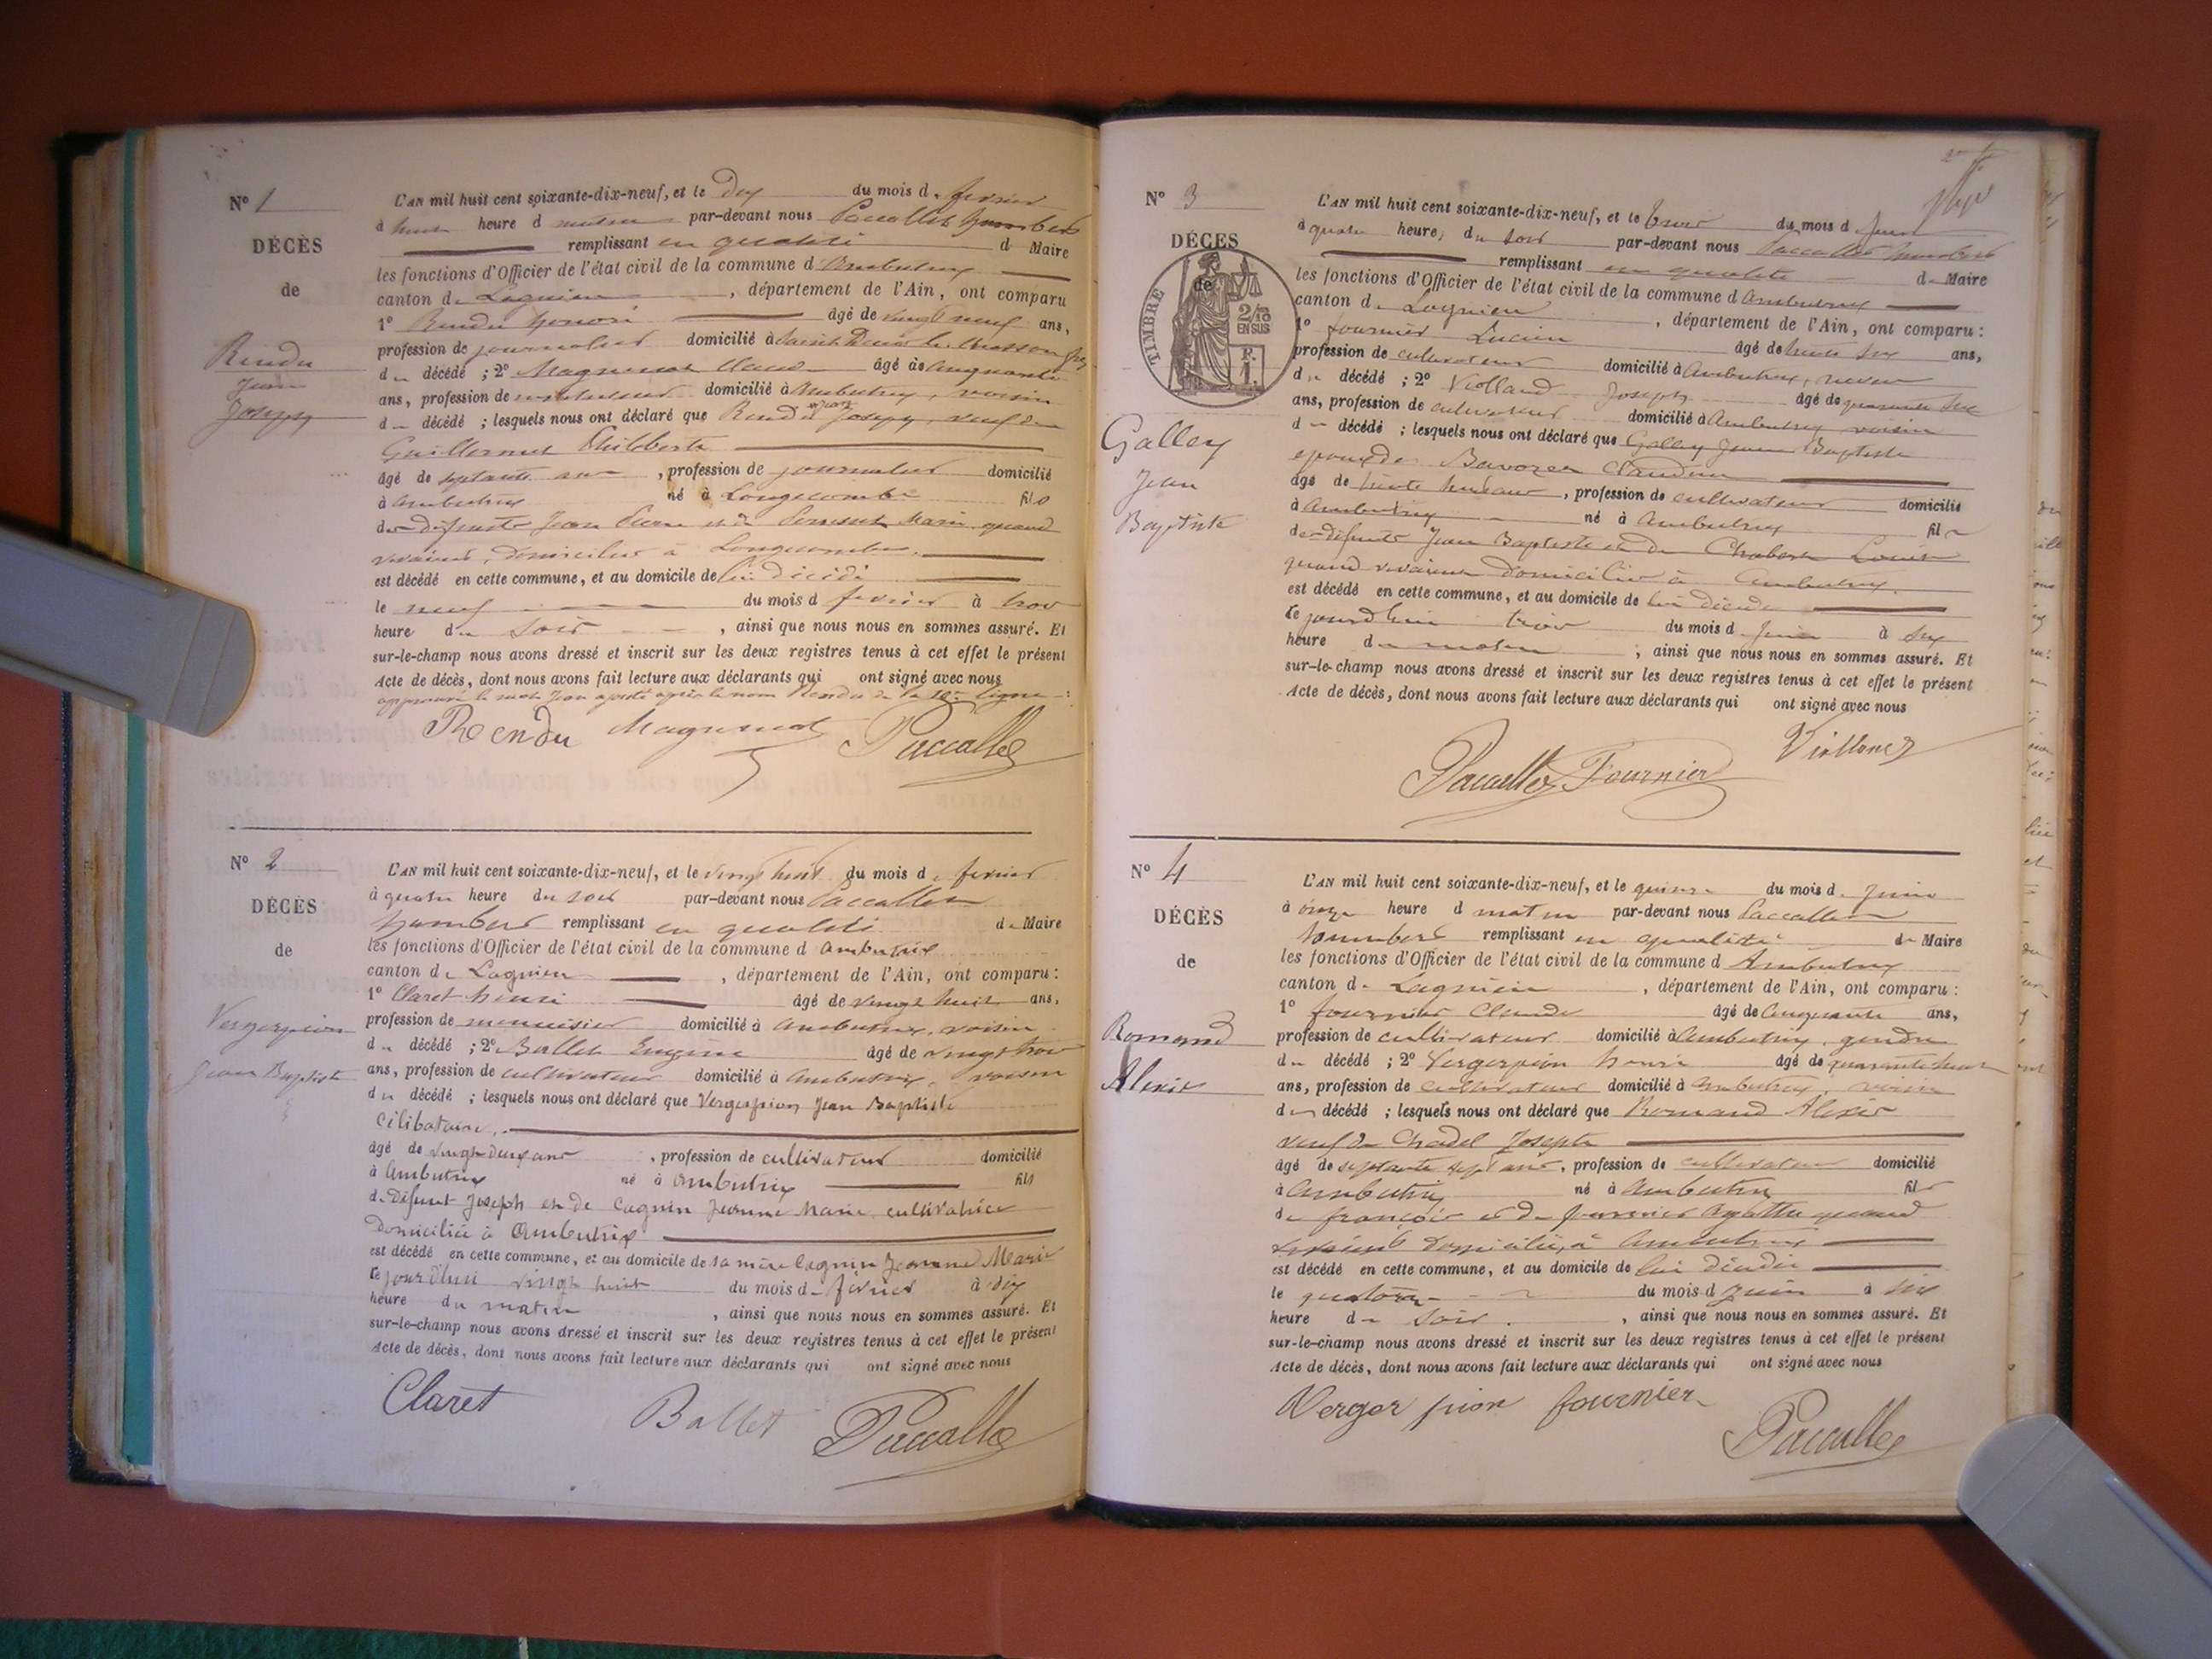 N° 1
DÉCÈS
de
Rendu
Jean
Joseph
L'AN mil huit cent soixante-dix-neuf, et le Dix du mois de fevrier
à huit heure d matin par-devant nous Paccallet humbert
remplissant en qualité d Maire
les fonctions d'Officier de l'état civil de la commune d'Ambutrix
canton de Lagnieu, département de l'Ain, ont comparu
1° Rendu honoré âgé de vingt neuf ans,
profession de journalier domicilié à Saint Denis le Chosson, fils
du décédé ; 2° Magnenot Claude âgé de cinquante
ans, profession de cultivateur domicilié à Ambutrix, voisin
du décédé ; lesquels nous ont déclaré que Rendu Jean Joseph, veuf de
Guillermet Philiberte
âgé de septante ans, profession de journalier domicilié
à Ambutrix né à Longecombe fils
de défunts Jean Pierre et de Marie quand
vivaient, domiciliés à Longecombe.
est décédé en cette commune, et au domicile de lui décédé
le neuf du mois d fevrier à trois
heure du soir, ainsi que nous nous en sommes assuré. Et
sur-le-champ nous avons dressé et inscrit sur les deux registres tenus à cet effet le présent
Acte de décès, dont nous avons fait lecture aux déclarants qui ont signé avec nous
approuvé le mot Jean ajouté après le nom Rendu de la 10me ligne
Rendu Magnenot Paccallet
N° 2
DÉCÈS
de
Vergerpion
Jean Baptiste
L'AN mil huit cent soixante-dix-neuf, et le vingt huit du mois de fevrier
à quatre heure du soir par-devant nous Paccallet
humbert remplissant en qualité de Maire
les fonctions d'Officier de l'état civil de la commune d Ambutrix
canton de Lagnieu, département de l'Ain, ont comparu :
1° Claret henri âgé de vingt huit ans,
profession de menuisier domicilié à Ambutrix, voisin
du décédé ; 2° Ballet Eugène âgé de vingt trois
ans, profession de cultivateur domicilié à Ambutrix, voisin
du décédé ; lesquels nous ont déclaré que Vergerpion Jean Baptiste
Célibataire,
âgé de vingt deux ans, profession de cultivateur domicilié
à Ambutrix né à Ambutrix fils
de défunt Joseph et de Cagnin Jeanne Marie cultivatrice
Domiciliée à Ambutrix
est décédé en cette commune, et au domicile de sa mère Cagnin Jeanne Marie
le jourd'hui vingt huit du mois de février à dix
heure du matin, ainsi que nous nous en sommes assuré. Et
sur-le-champ nous avons dressé et inscrit sur les deux registres tenus à cet effet le présent
Acte de décès, dont nous avons fait lecture aux déclarants qui ont signé avec nous
Claret Ballet Paccallet
N° 3
DÉCES
de
TIMBRE
2/10
EN SUS
F.
1.
Galley
Jean
Baptiste
L'AN mil huit cent soixante-dix-neuf, et le trois du mois de Juin
à quatre heure, du soir par-devant nous Paccallet humbert
remplissant en qualité de Maire
les fonctions d'Officier de l'état civil de la commune d'Ambutrix
canton de Lagnieu, département de l'Ain, ont comparu :
1° fournier Lucien âgé de trente six ans,
profession de cultivateur domicilié à Ambutrix, neveu
du décédé ; 2° Violland Joseph âgé de quarante six
ans, profession de cultivateur domicilié à Ambutrix voisin
du décédé ; lesquels nous ont déclaré que Galley Jean Baptiste
époux de Bavozat Claudine
âgé de ans, profession de cultivateur domicilié
à Ambutrix né à Ambutrix fils
de défunts Jean Baptiste et de Chabert Louise
quand vivaient domiciliés à Ambutrix.
est décédé en cette commune, et au domicile de lui décédé
le jourd'hui trois du mois d Juin à six
heure du matin, ainsi que nous nous en sommes assuré. Et
sur-le-champ nous avons dressé et inscrit sur les deux registres tenus à cet effet le présent
Acte de décès, dont nous avons fait lecture aux déclarants qui ont signé avec nous
Paccallet Fournier Violland
N° 4
DÉCÈS
de
Romand
Alexis
L'AN mil huit cent soixante-dix-neuf, et le quinze du mois de Juin
à onze heure d matin par-devant nous Paccallet
humbert remplissant en qualité de Maire
les fonctions d'Officier de l'état civil de la commune d Ambutrix
canton de Lagnieu, département de l'Ain, ont comparu :
1° fournier Claude âgé de cinquante ans,
profession de cultivateur domicilié à Ambutrix, gendre
du décédé ; 2° Vergerpion henri âgé de quarante huit
ans, profession de cultivateur domicilié à Ambutrix, voisin
du décédé ; lesquels nous ont déclaré que Romand Alexis
veuf de Chadel Josephte
âgé de septante sept ans, profession de cultivateur domicilié
à Ambutrix né à Ambutrix fils
de françois et de fournier Agathe quand
vivaient domiciliés à Ambutrix
est décédé en cette commune, et au domicile de lui décédé
le quatorze du mois d Juin à six
heure du soir, ainsi que nous nous en sommes assuré. Et
sur-le-champ nous avons dressé et inscrit sur les deux registres tenus à cet effet le présent
Acte de décès, dont nous avons fait lecture aux déclarants qui ont signé avec nous
Verger pion fournier
Paccallet